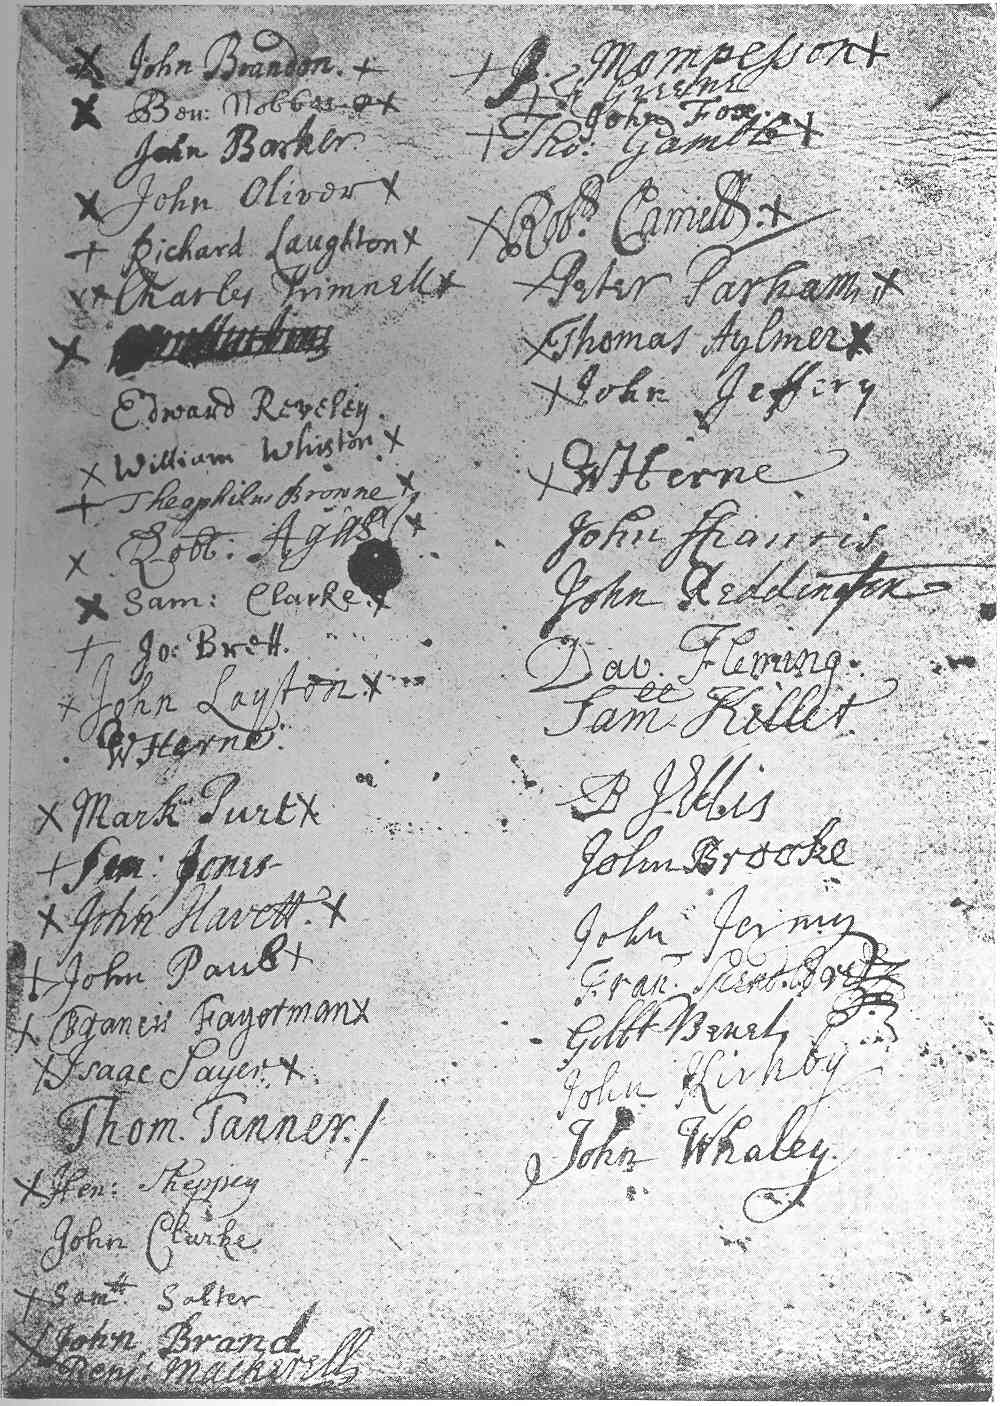 x John Brandon. +
x Ben: Nobbes x
John Barker
x John Oliver x
+ Richard Laughton x
x x Charles Trimnell x
x
Edward Reveley.
x William Whiston. x
+ Theophilus Browne x
x Robt: x
x Sam: Clarke. x
+ Jo: Brett.
x John Layton. x
W Herne.
x Mark Purt x
+ Sam: Jones
x John Havett. x
+ John Paul +
x Fayerman x
x Isaac Sayer. x
Thom. Tanner. /
x Hen: Sheppey
John Clarke.
x Samll. Salter
x John Brand
Benj: Mackerell
+ J. Mompesson +
Greene
John Fox.
+ Tho: Gamble +
x Robt. Camell. x
Peter Parham x
x Thomas Aylmer x
x John Jeffery
x W Herne
John
John Reddington
Dav. Fleming.
Samll Killet
B J Ellis
John Brooke
John Jermy
Fran.
Gilbt
John Kirkby
John Whaley.